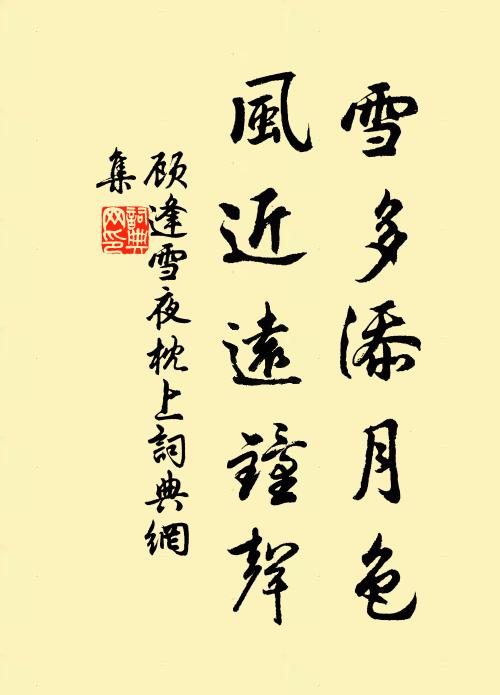 雪多添月色
風近遠鐘聲
顾逢雪夜枕上詞典網
集
詞典網印